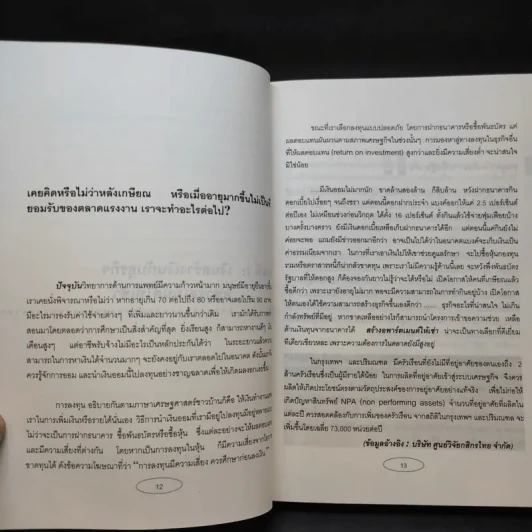 เคยคิดหรือไม่ว่าหลังเกษียณ หรือเมื่ออายุมากขึ้นไม่เป็นที่
ยอมรับของตลาดแรงงาน เราจะทำอะไรต่อไป?
ปัจจุบันวิทยาการด้านการแพทย์มีความก้าวหน้ามาก มนุษย์มีอายุยืนยาวขึ้น
เราเคยนั่งพิจารณาหรือไม่ว่า หากอายุเกิน 70 ต่อไปถึง 80 หรืออาจเลยไปถึง 90 เรา
มีอะไรมารองรับค่าใช้จ่ายต่างๆ ที่เพิ่มและยาวนานขึ้นกว่าเดิม เรามักได้รับการ
สอนมาโดยตลอดว่าการศึกษาเป็นสิ่งสำคัญที่สุด ยิ่งเรียนสูง ก็สามารถหางานดีๆ
เดือนสูงๆ แต่อาชีพรับจ้างไม่มีอะไรเป็นหลักประกันได้ว่า ในระยะยาวแล้วความ
สามารถในการหาเงินได้จำนวนมากๆ จะยังคงอยู่กับเราตลอดไปในอนาคต ดังนั้นเรา
ควรรู้จักการออม และนำเงินออมนี้ไปลงทุนอย่างชาญฉลาดเพื่อให้เกิดผล
การลงทุน อธิบายกันตามภาษาเศรษฐศาสตร์ชาวบ้านก็คือ ให้เงินทำงานแทน
เราในการเพิ่มเงินหรือรายได้นั่นเอง วิธีการนำเงินออมที่เรามีอยู่ไปลงทุนมีอยู่หลาย
ไม่ว่าจะเป็นการฝากธนาคาร ซื้อพันธบัตรหรือซื้อหุ้น ซึ่งแต่ละอย่างจะให้ผลตอบ
และมีความเสี่ยงที่ต่างกัน โดยหากเป็นการลงทุนในหุ้น ก็มีความเสี่ยงจาก
ขาดทุนได้ ดังข้อความโฆษณาที่ว่า "การลงทุนมีความเสี่ยง ควรศึกษาก่อนลงเงิน"
12
ขณะที่เราเลือกลงทุนแบบปลอดภัย โดยการฝากธนาคารหรือซื้อพันธบัตร แต่
ผลตอบแทนผันผวนตามสภาพเศรษฐกิจในช่วงนั้นๆ การมองหาลู่ทางลงทุนในธุรกิจอื่น
ที่ให้ผลตอบแทน (return on investment) สูงกว่าและยิ่งมีความเสี่ยงต่ำ จะน่าสนใจ
มิใช่น้อย
... มีเงินออมไม่มากนัก ขาดล้านสองล้าน ก็สิบล้าน หวังฝากธนาคารกิน
ดอกเบี้ยไปเรื่อยๆ จนถึงชรา แต่ตอนนี้ดอกฝากประจำ แบงค์ออกให้แค่ 2.5 เปอร์เซ็นต์
ต่อปีเอง ไม่เหมือนช่วงก่อนวิกฤต ได้ตั้ง 16 เปอร์เซ็นต์ ทั้งกินแล้วใช้จ่ายฟุ่มเฟือยบ้าง
บางครั้งบางคราว ยังมีเงินดอกเบี้ยเหลือเก็บฝากธนาคารได้อีก แต่ตอนนี้แค่กินยังไม่
ค่อยจะพอ แถมยังมีข่าวออกมาอีกว่า อาจเป็นไปได้ว่าในอนาคตแบงค์จะเก็บกินเป็น
ค่าธรรมเนียมจากเรา ในการที่เราเอาเงินไปให้เขาช่วยดูแลรักษา จะไปซื้อหุ้นกองทุน
รวมหรือตราสารหนี้ก็น่ากลัวขาดทุน เพราะเราไม่มีความรู้ด้านนี้เลย จะหวังพึ่งพันธบัตร
รัฐบาลที่ให้ดอกสูง ก็ต้องจองกันยาวไม่รู้ว่าจะได้หรือไม่ เปิดโอกาสให้คนที่เกษียณแล้ว
ซื้อดีกว่า เพราะเรายังอายุไม่มาก พอจะมีความสามารถในการทำกินอยู่บ้าง เปิดโอกาส
ให้ตนเองได้ใช้ความสามารถสร้างธุรกิจขึ้นเองดีกว่า ... ธุรกิจอะไรที่น่าสนใจ ไม่เกิน
กำลังทรัพย์ที่มีอยู่ หากขาดเหลืออย่างไรก็สามารถนำโครงการเข้าขอความช่วย เหลือ
ด้านเงินทุนจากธนาคารได้ สร้างอพาร์ตเมนต์ให้เช่า น่าจะเป็นทางเลือกที่ดีเยี่ยม
ทีเดียวเชียวหละ เพราะความต้องการในตลาดยังมีสูงอยู่
ในกรุงเทพฯ และปริมณฑล มีครัวเรือนที่ยังไม่มีที่อยู่อาศัยของตนเองถึง 2
ล้านครัวเรือนซึ่งเป็นผู้มีรายได้น้อย ในการผลิตที่อยู่อาศัยเข้าสู่ระบบเศรษฐกิจ จึงควร
ผลิตให้เกิดประโยชน์ตรงตามวัตถุประสงค์ของการอยู่อาศัยอย่างแท้จริง เพื่อไม่ก่อให้
เกิดปัญหาสินทรัพย์ NPA (non performing assets) จำนวนที่อยู่อาศัยที่ผลิตใน
แต่ละปี ควรสอดคล้องกับการเพิ่มของครัวเรือน จากสถิติในกรุงเทพฯ และปริมณฑล จะ
เพิ่มขึ้นโดยเฉลี่ย 73,000 หน่วยต่อปี
(ข้อมูลอ้างอิง : บริษัท ศูนย์วิจัยกสิกรไทย จำกัด)
13